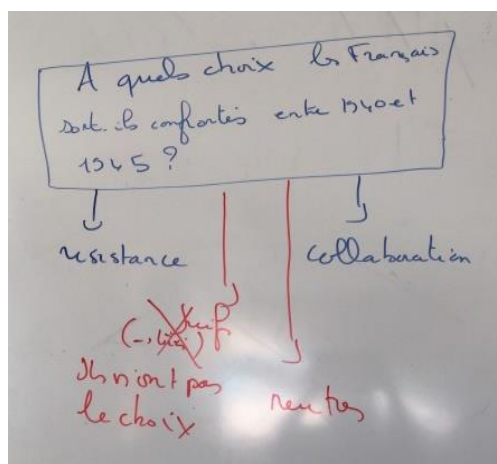 A quels choix les Français
sont-ils confrontés entre 1940 et
1945 ?
résistance
collaboration
Juif
Ils n'ont pas
le choix
neutres